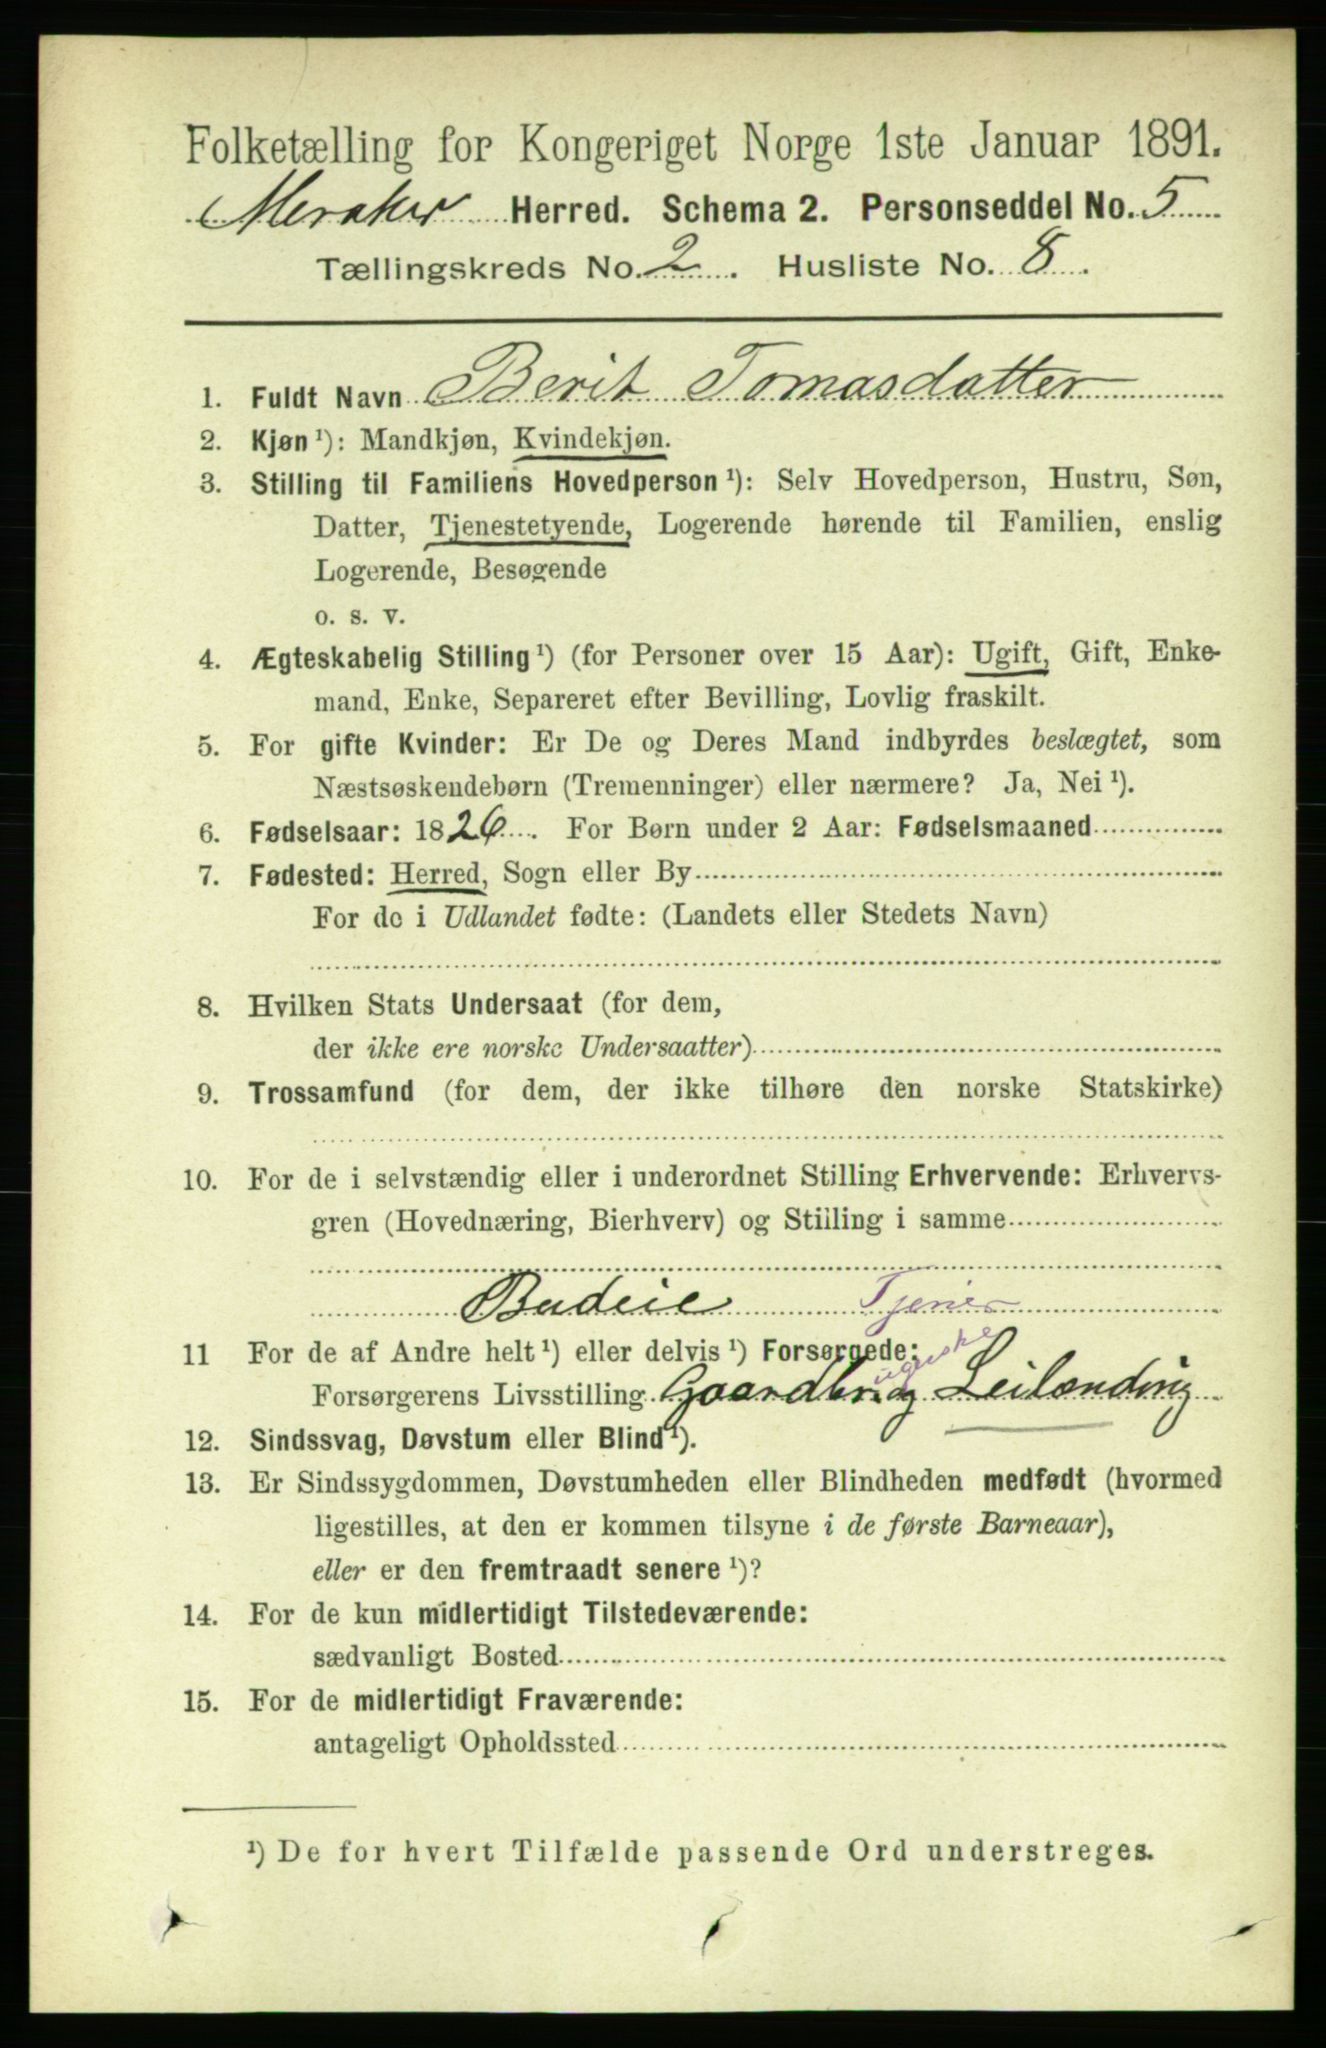 Folketælling for Kongeriget Norge 1ste Januar 1891.
Meraker Herred. Schema 2. Personseddel No. 5
Tællingskreds No. 2. Husliste No. 8.
1. Fuldt Navn Berit Tomasdatter
2. Kjøn ¹): Mandkjøn, Kvindekjøn.
3. Stilling til Familiens Hovedperson ¹): Selv Hovedperson, Hustru, Søn,
Datter, Tjenestetyende, Logerende hørende til Familien, enslig
Logerende, Besøgende
o. s. v.
4. Ægteskabelig Stilling ¹) (for Personer over 15 Aar): Ugift, Gift, Enke-
mand, Enke, Separeret efter Bevilling, Lovlig fraskilt.
5. For gifte Kvinder: Er De og Deres Mand indbyrdes beslægtet, som
Næstsøskendebørn (Tremenninger) eller nærmere? Ja, Nei ¹).
6. Fødselsaar: 1826. For Børn under 2 Aar: Fødselsmaaned
7. Fødested: Herred, Sogn eller By
For de i Udlandet fødte: (Landets eller Stedets Navn)
8. Hvilken Stats Undersaat (for dem,
der ikke ere norske Undersaatter)
9. Trossamfund (for dem, der ikke tilhøre den norske Statskirke)
10. For de i selvstændig eller i underordnet Stilling Erhvervende: Erhvervs-
gren (Hovednæring, Bierhverv) og Stilling i samme
Budeie Tjener
11 For de af Andre helt ¹) eller delvis ¹) Forsørgede:
Forsørgerens Livsstilling Gaardbr. og Leilending
12. Sindssvag, Døvstum eller Blind ¹).
13. Er Sindssygdommen, Døvstumheden eller Blindheden medfødt (hvormed
ligestilles, at den er kommen tilsyne i de første Barneaar),
eller er den fremtraadt senere ¹)?
14. For de kun midlertidigt Tilstedeværende:
sædvanligt Bosted
15. For de midlertidigt Fraværende:
antageligt Opholdssted
¹) De for hvert Tilfælde passende Ord understreges.